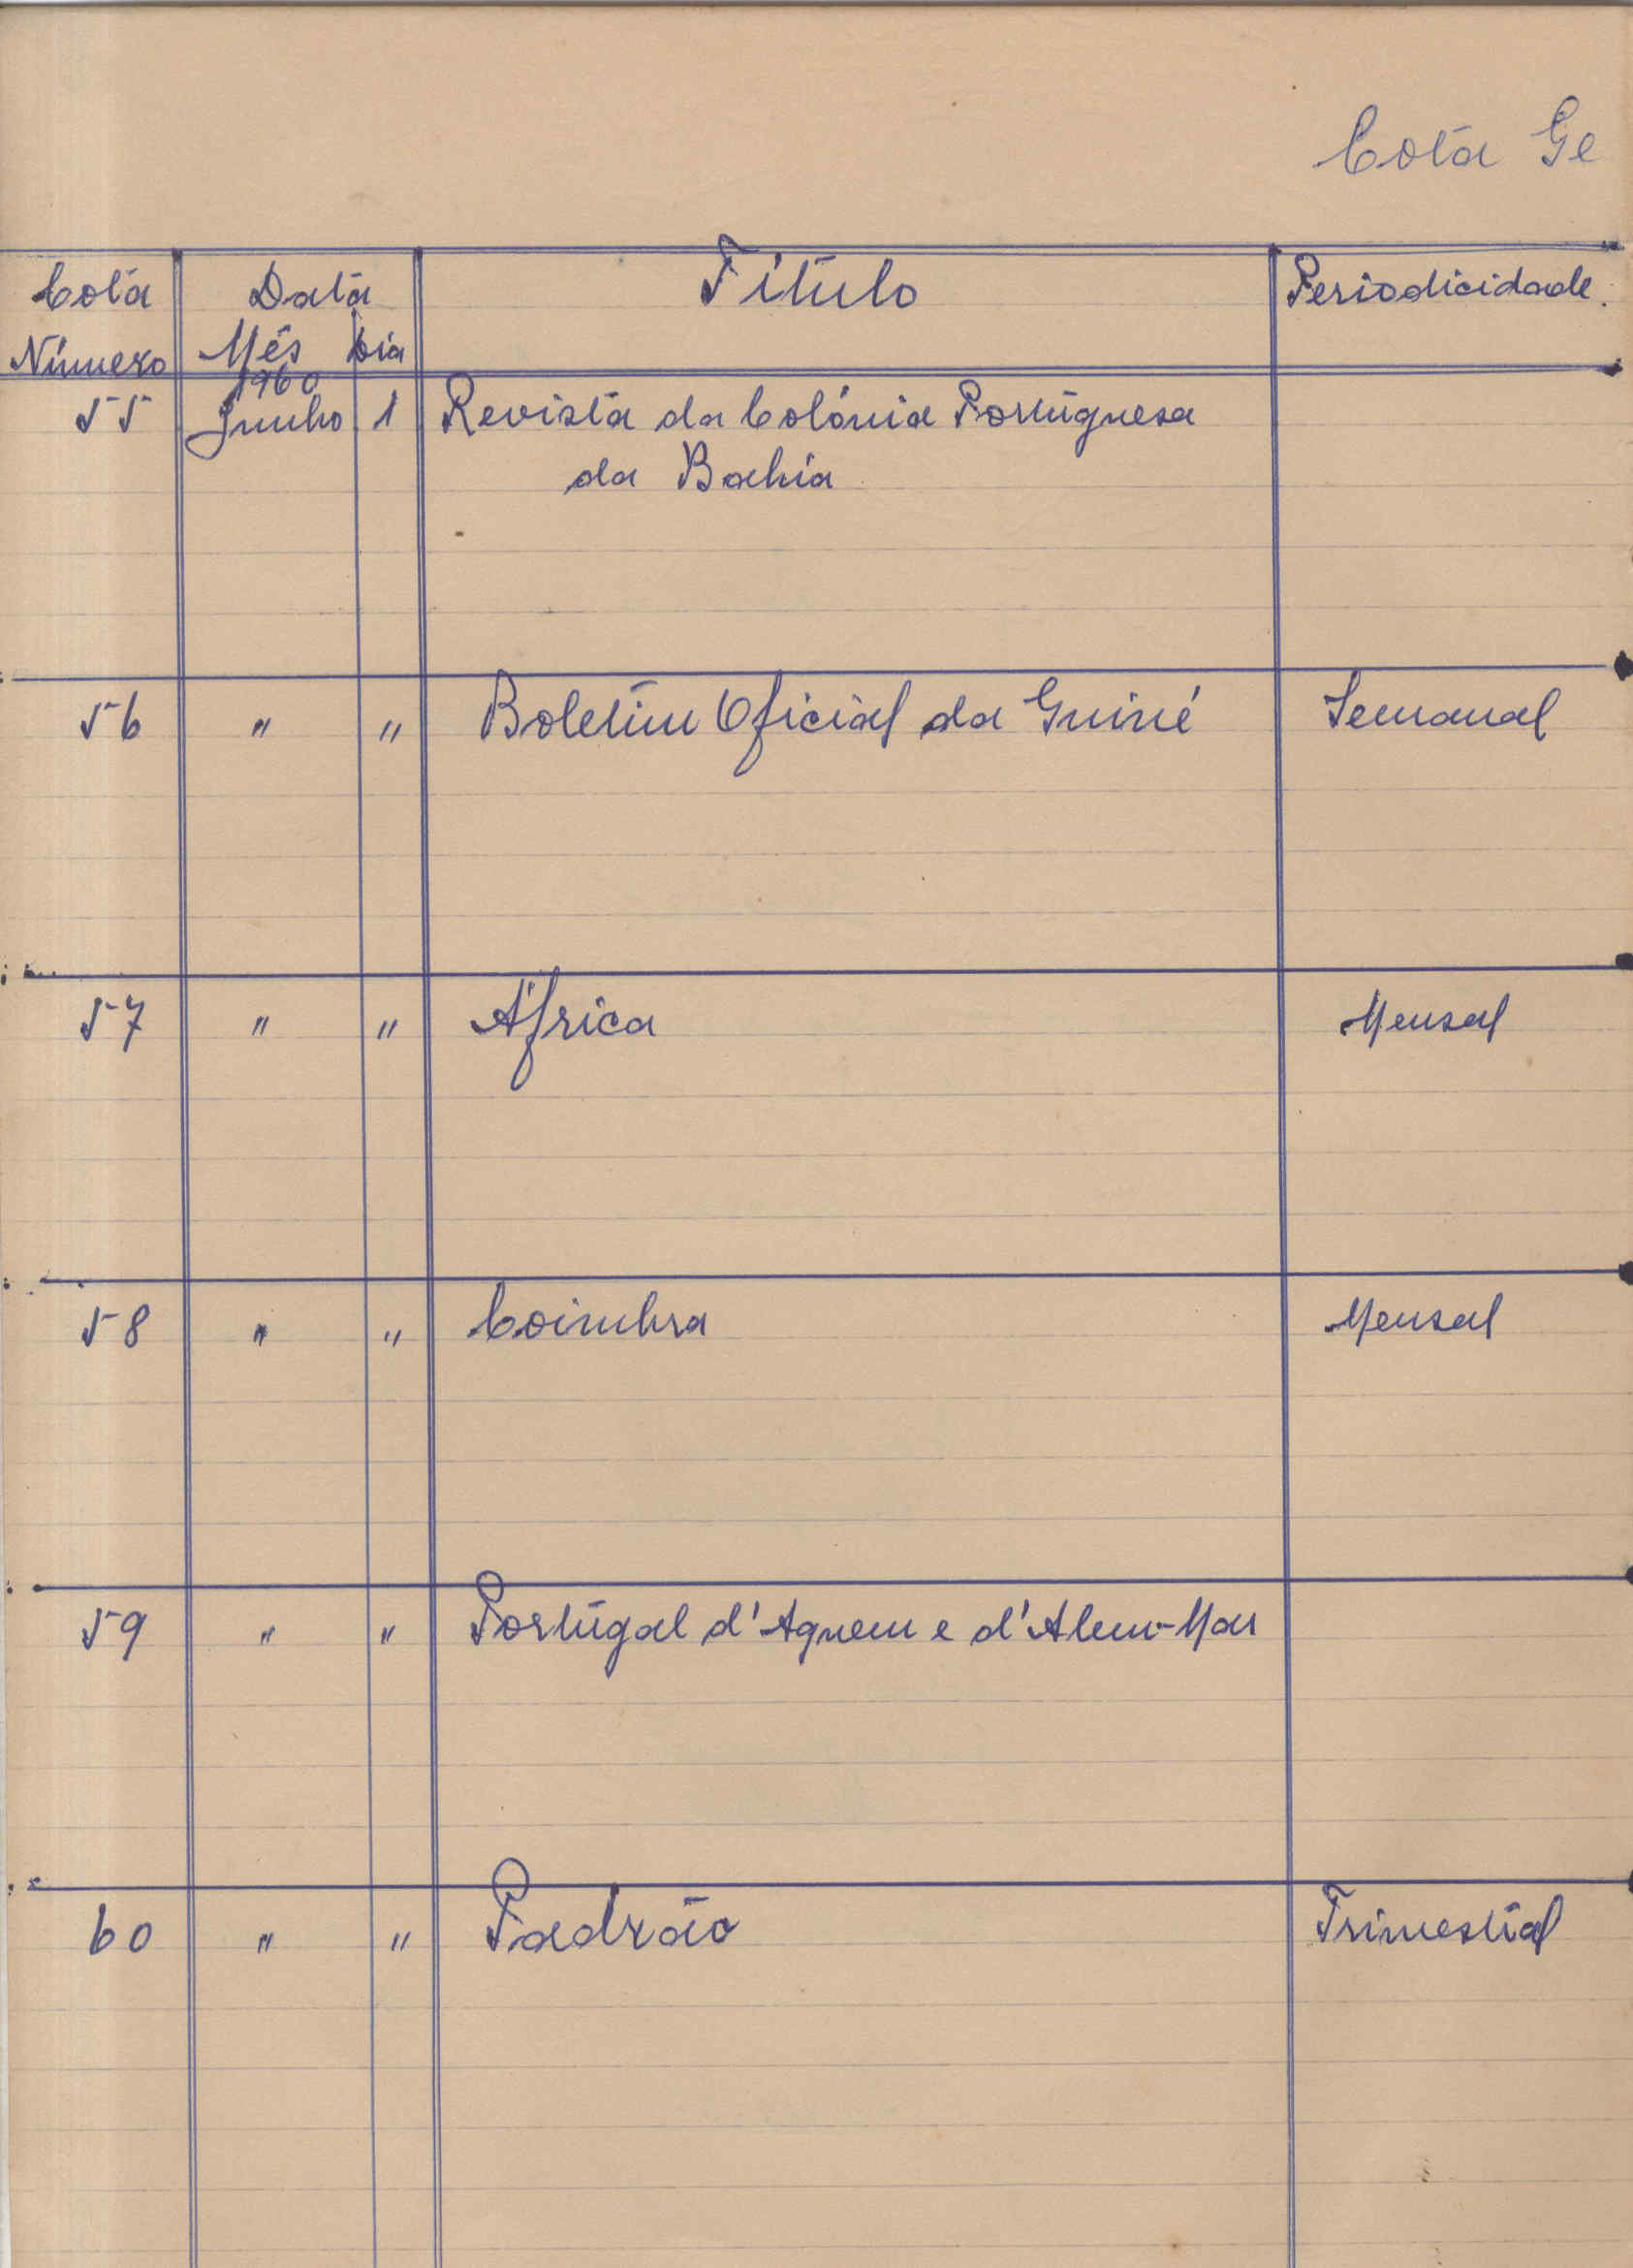 Cota Ge
Cota Data Título Periodicidade.
Número Mês Dia
1960
55 Junho 1 Revista da Colónia Portuguesa
da Bahia
56 " " Boletim Oficial da Guiné Semanal
57 " " África Mensal
58 " " Coimbra Mensal
59 " " Portugal d'Aquem e d'Alem-Mar
60 " " Padrão Trimestral